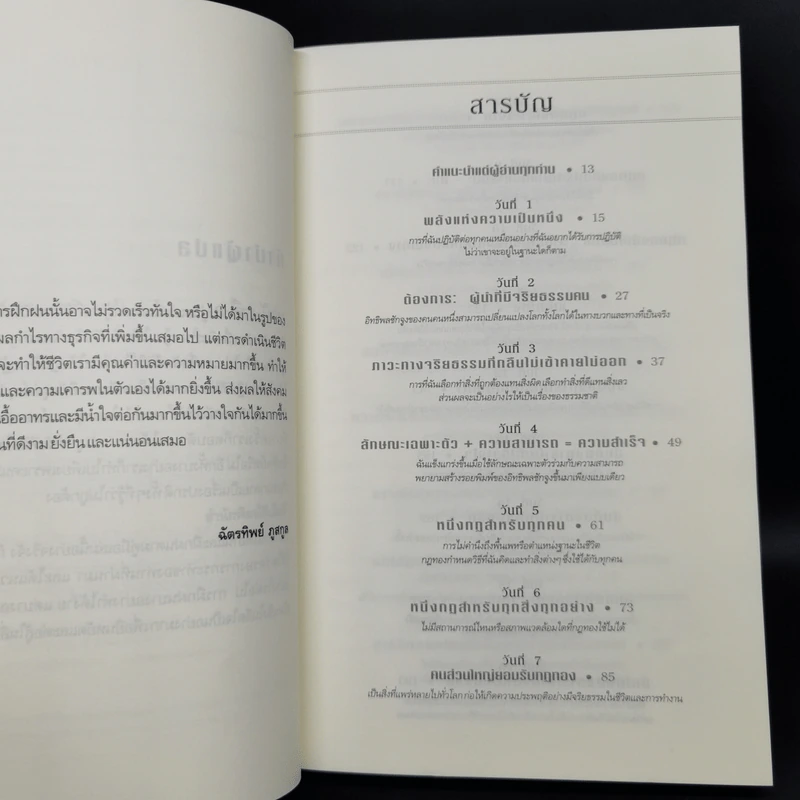 ารฝึกฝนนั้นอาจไม่รวดเร็วทันใจ หรือไม่ได้มาในรูปของ
ผลกำไรทางธุรกิจที่เพิ่มขึ้นเสมอไป แต่การดำเนินชีวิต
จะทำให้ชีวิตเรามีคุณค่าและความหมายมากขึ้น ทำให้
และความเคารพในตัวเองได้มากยิ่งขึ้น ส่งผลให้สังคม
เอื้ออาทรและมีน้ำใจต่อกันมากขึ้นไว้วางใจกันได้มากขึ้น
นที่ดีงาม ยั่งยืน และแน่นอนเสมอ
ฉัตรทิพย์ ภูสกูล
สารบัญ
คำแนะนำแด่ผู้อ่านทุกท่าน • 13
วันที่ 1
พลังแห่งความเป็นหนึ่ง • 15
การที่ฉันปฏิบัติต่อทุกคนเหมือนอย่างที่ฉันอยากได้รับการปฏิบัติ
ไม่ว่าเขาจะอยู่ในฐานะใดก็ตาม
วันที่ 2
ต้องการ: ผู้นำที่มีจริยธรรมคน • 27
อิทธิพลชักจูงของคนคนหนึ่งสามารถเปลี่ยนแปลงโลกทั้งโลกได้ในทางบวกและทางที่เป็นจริง
วันที่ 3
ภาวะทางจริยธรรมที่กลืนไม่เข้าคายไม่ออก • 37
การที่ฉันเลือกทำสิ่งที่ถูกต้องแทนสิ่งผิด เลือกทำสิ่งที่ดีแทนสิ่งเลว
ส่วนผลจะเป็นอย่างไรให้เป็นเรื่องของธรรมชาติ
วันที่ 4
ลักษณะเฉพาะตัว + ความสามารถ = ความสำเร็จ • 49
ฉันแข็งแกร่งขึ้นเมื่อใช้ลักษณะเฉพาะตัวร่วมกับความสามารถ
พยายามสร้างรอยพิมพ์ของอิทธิพลชักจูงขึ้นมาเพียงแบบเดียว
วันที่ 5
หนึ่งกฎสำหรับทุกคน • 61
การไม่คำนึงถึงพื้นเพหรือตำแหน่งฐานะในชีวิต
กฎทองกำหนดวิธีที่ฉันคิดและทำสิ่งต่างๆ ซึ่งใช้ได้กับทุกคน
วันที่ 6
หนึ่งกฎสำหรับทุกสิ่งทุกอย่าง • 73
ไม่มีสถานการณ์ไหนหรือสภาพแวดล้อมใดที่กฎทองใช้ไม่ได้
วันที่ 7
คนส่วนใหญ่ยอมรับกฎทอง • 85
เป็นสิ่งที่แพร่หลายไปทั่วโลก ก่อให้เกิดความประพฤติอย่างมีจริยธรรมในชีวิตและการทำงาน